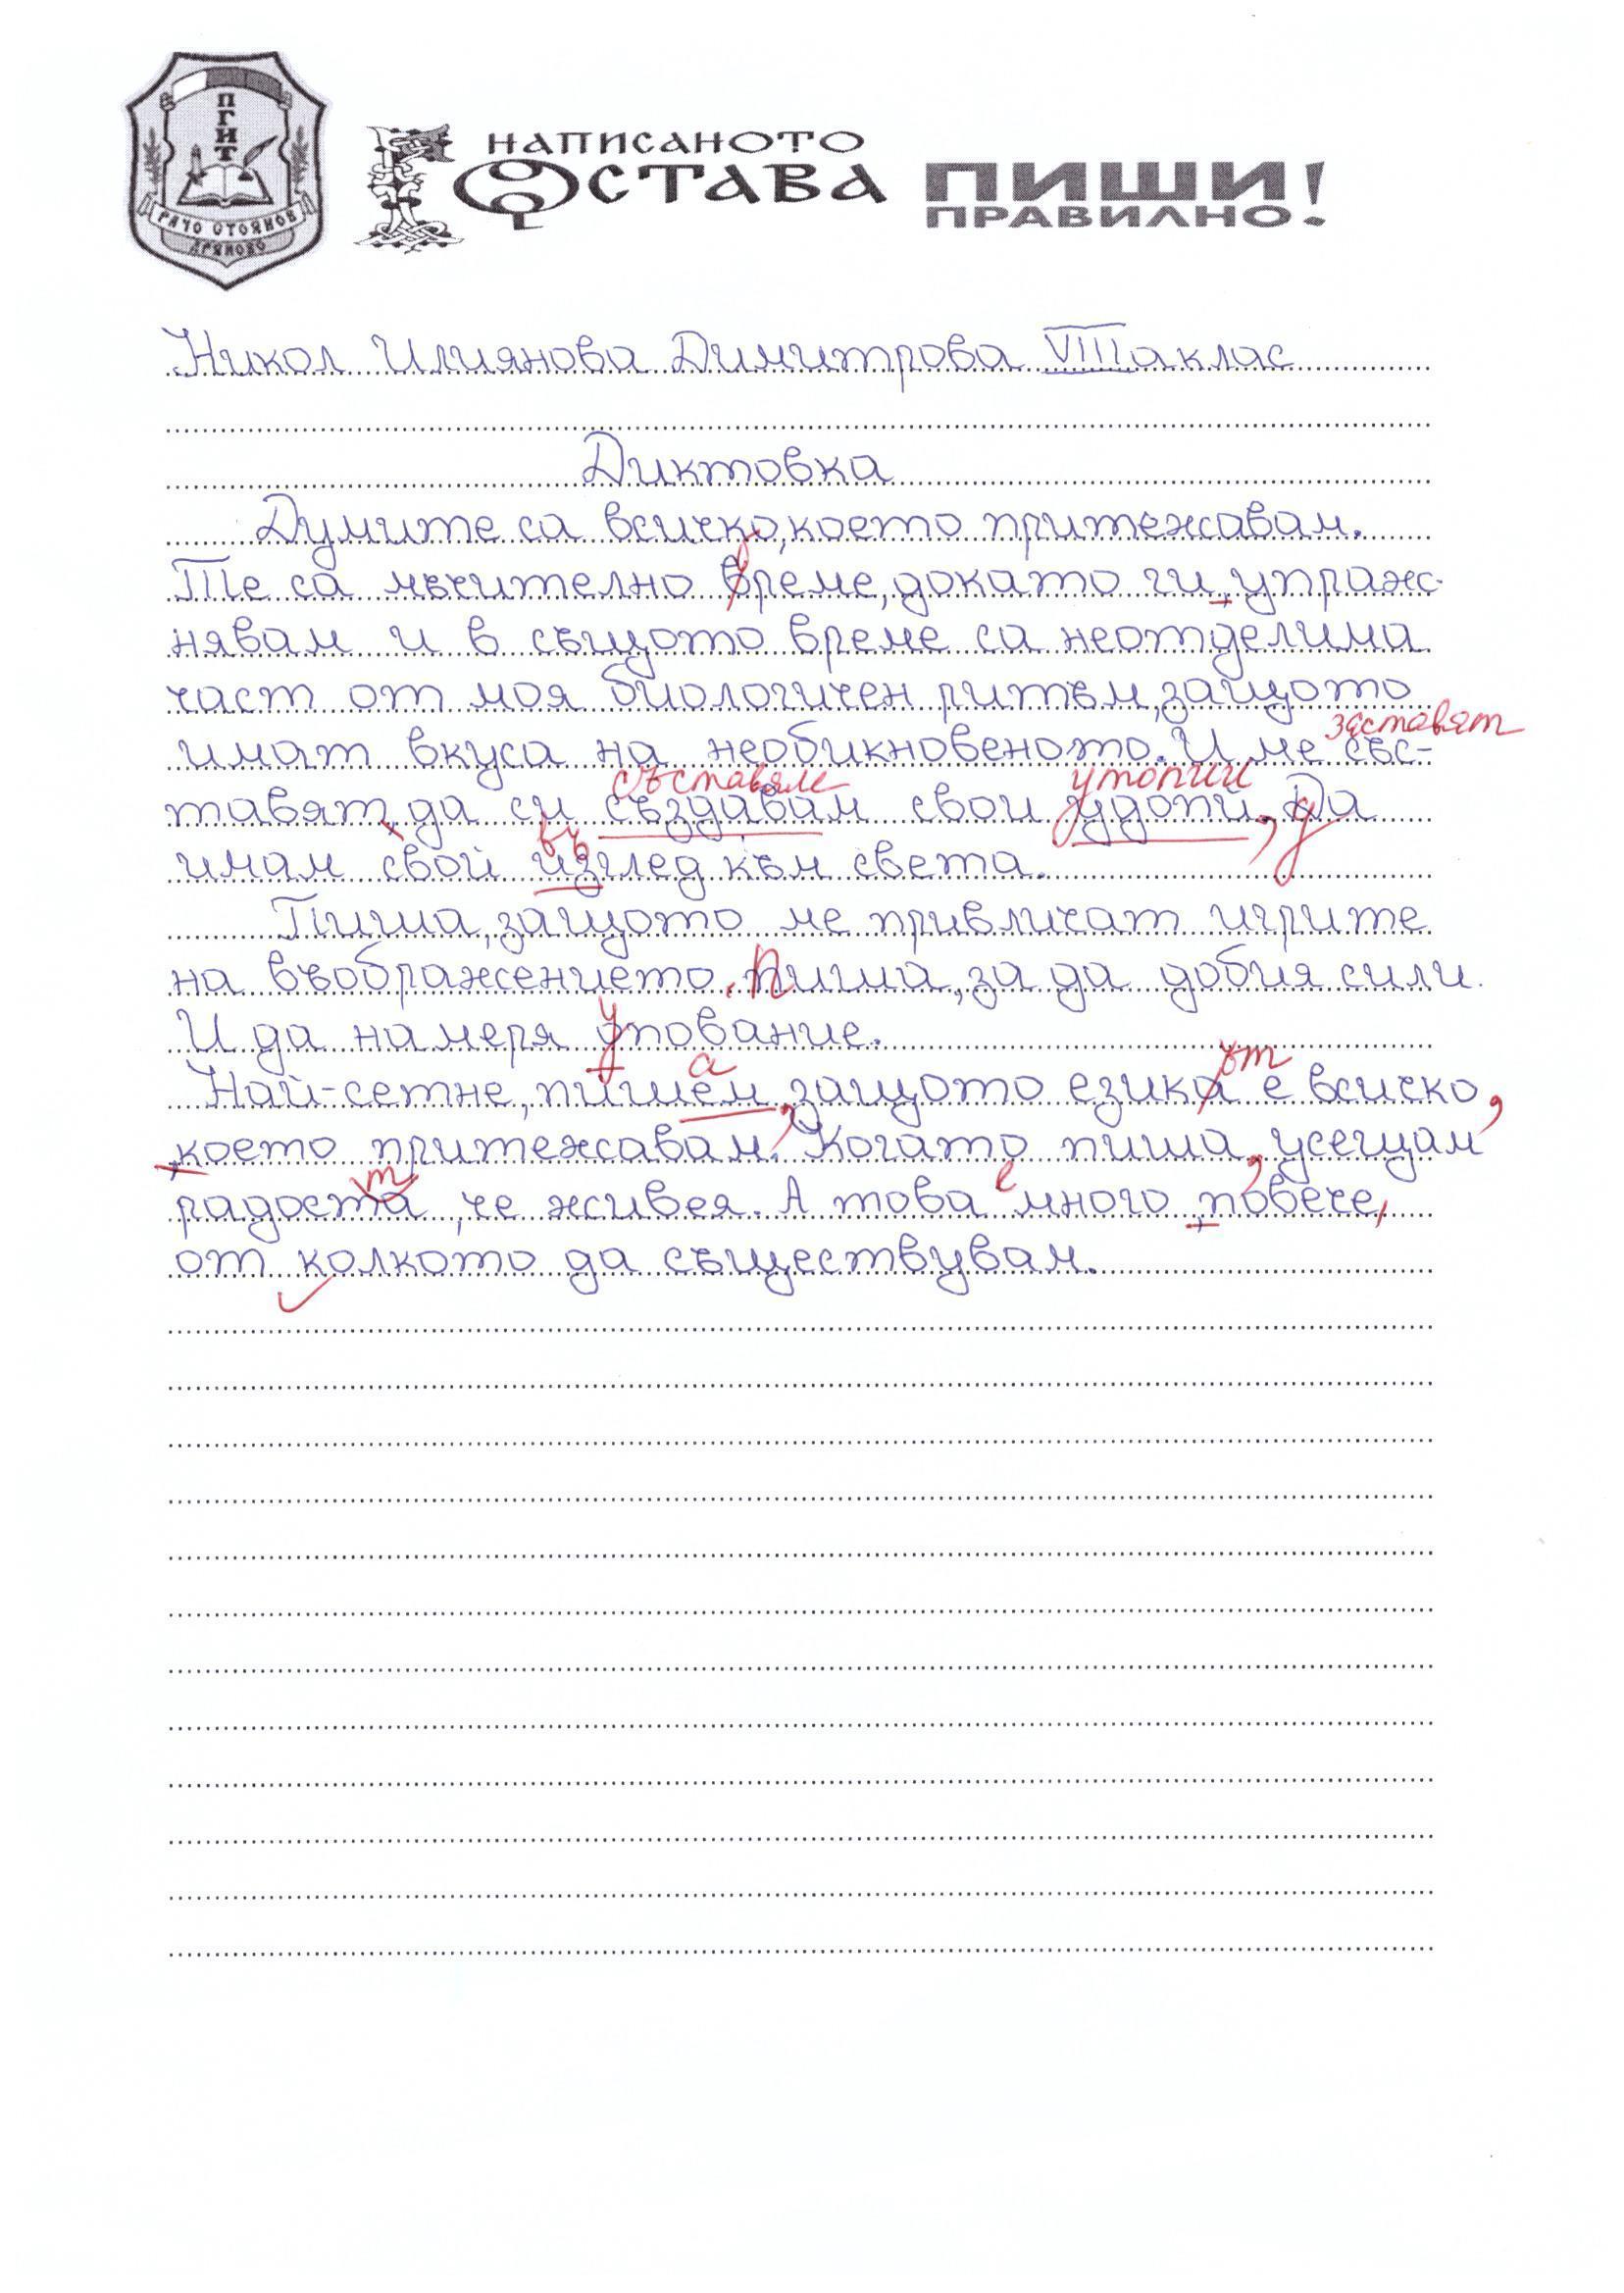 ПГИТ
РАЧО СТОЯНОВ
ДРЯНОВО
НАПИСАНОТО
ОСТАВА
ПИШИ
ПРАВИЛНО!
Никол Илиянова Димитрова VIII а клас
Диктовка
Думите са всичко, което притежавам.
Те са мъчително бреме, докато ги, упраж-
нявам и в същото време са неотделима
част от моя биологичен ритъм, защото
заставят
имат вкуса на необикновеното. И ме със-
съставям утопии
тавят, да си създавам свои удопй, Да
въ
имам свой изглед към света.
Пиша, защото ме привличат игрите
на въображението. Пиша, за да добия сили.
у
И да намеря опование.
а ът
Най-сетне, пишем, защото езика е всичко,
, което притежавам. Когато пиша, усещам
т е
радоста, че живея. А това много, повече,
от колкото да съществувам.